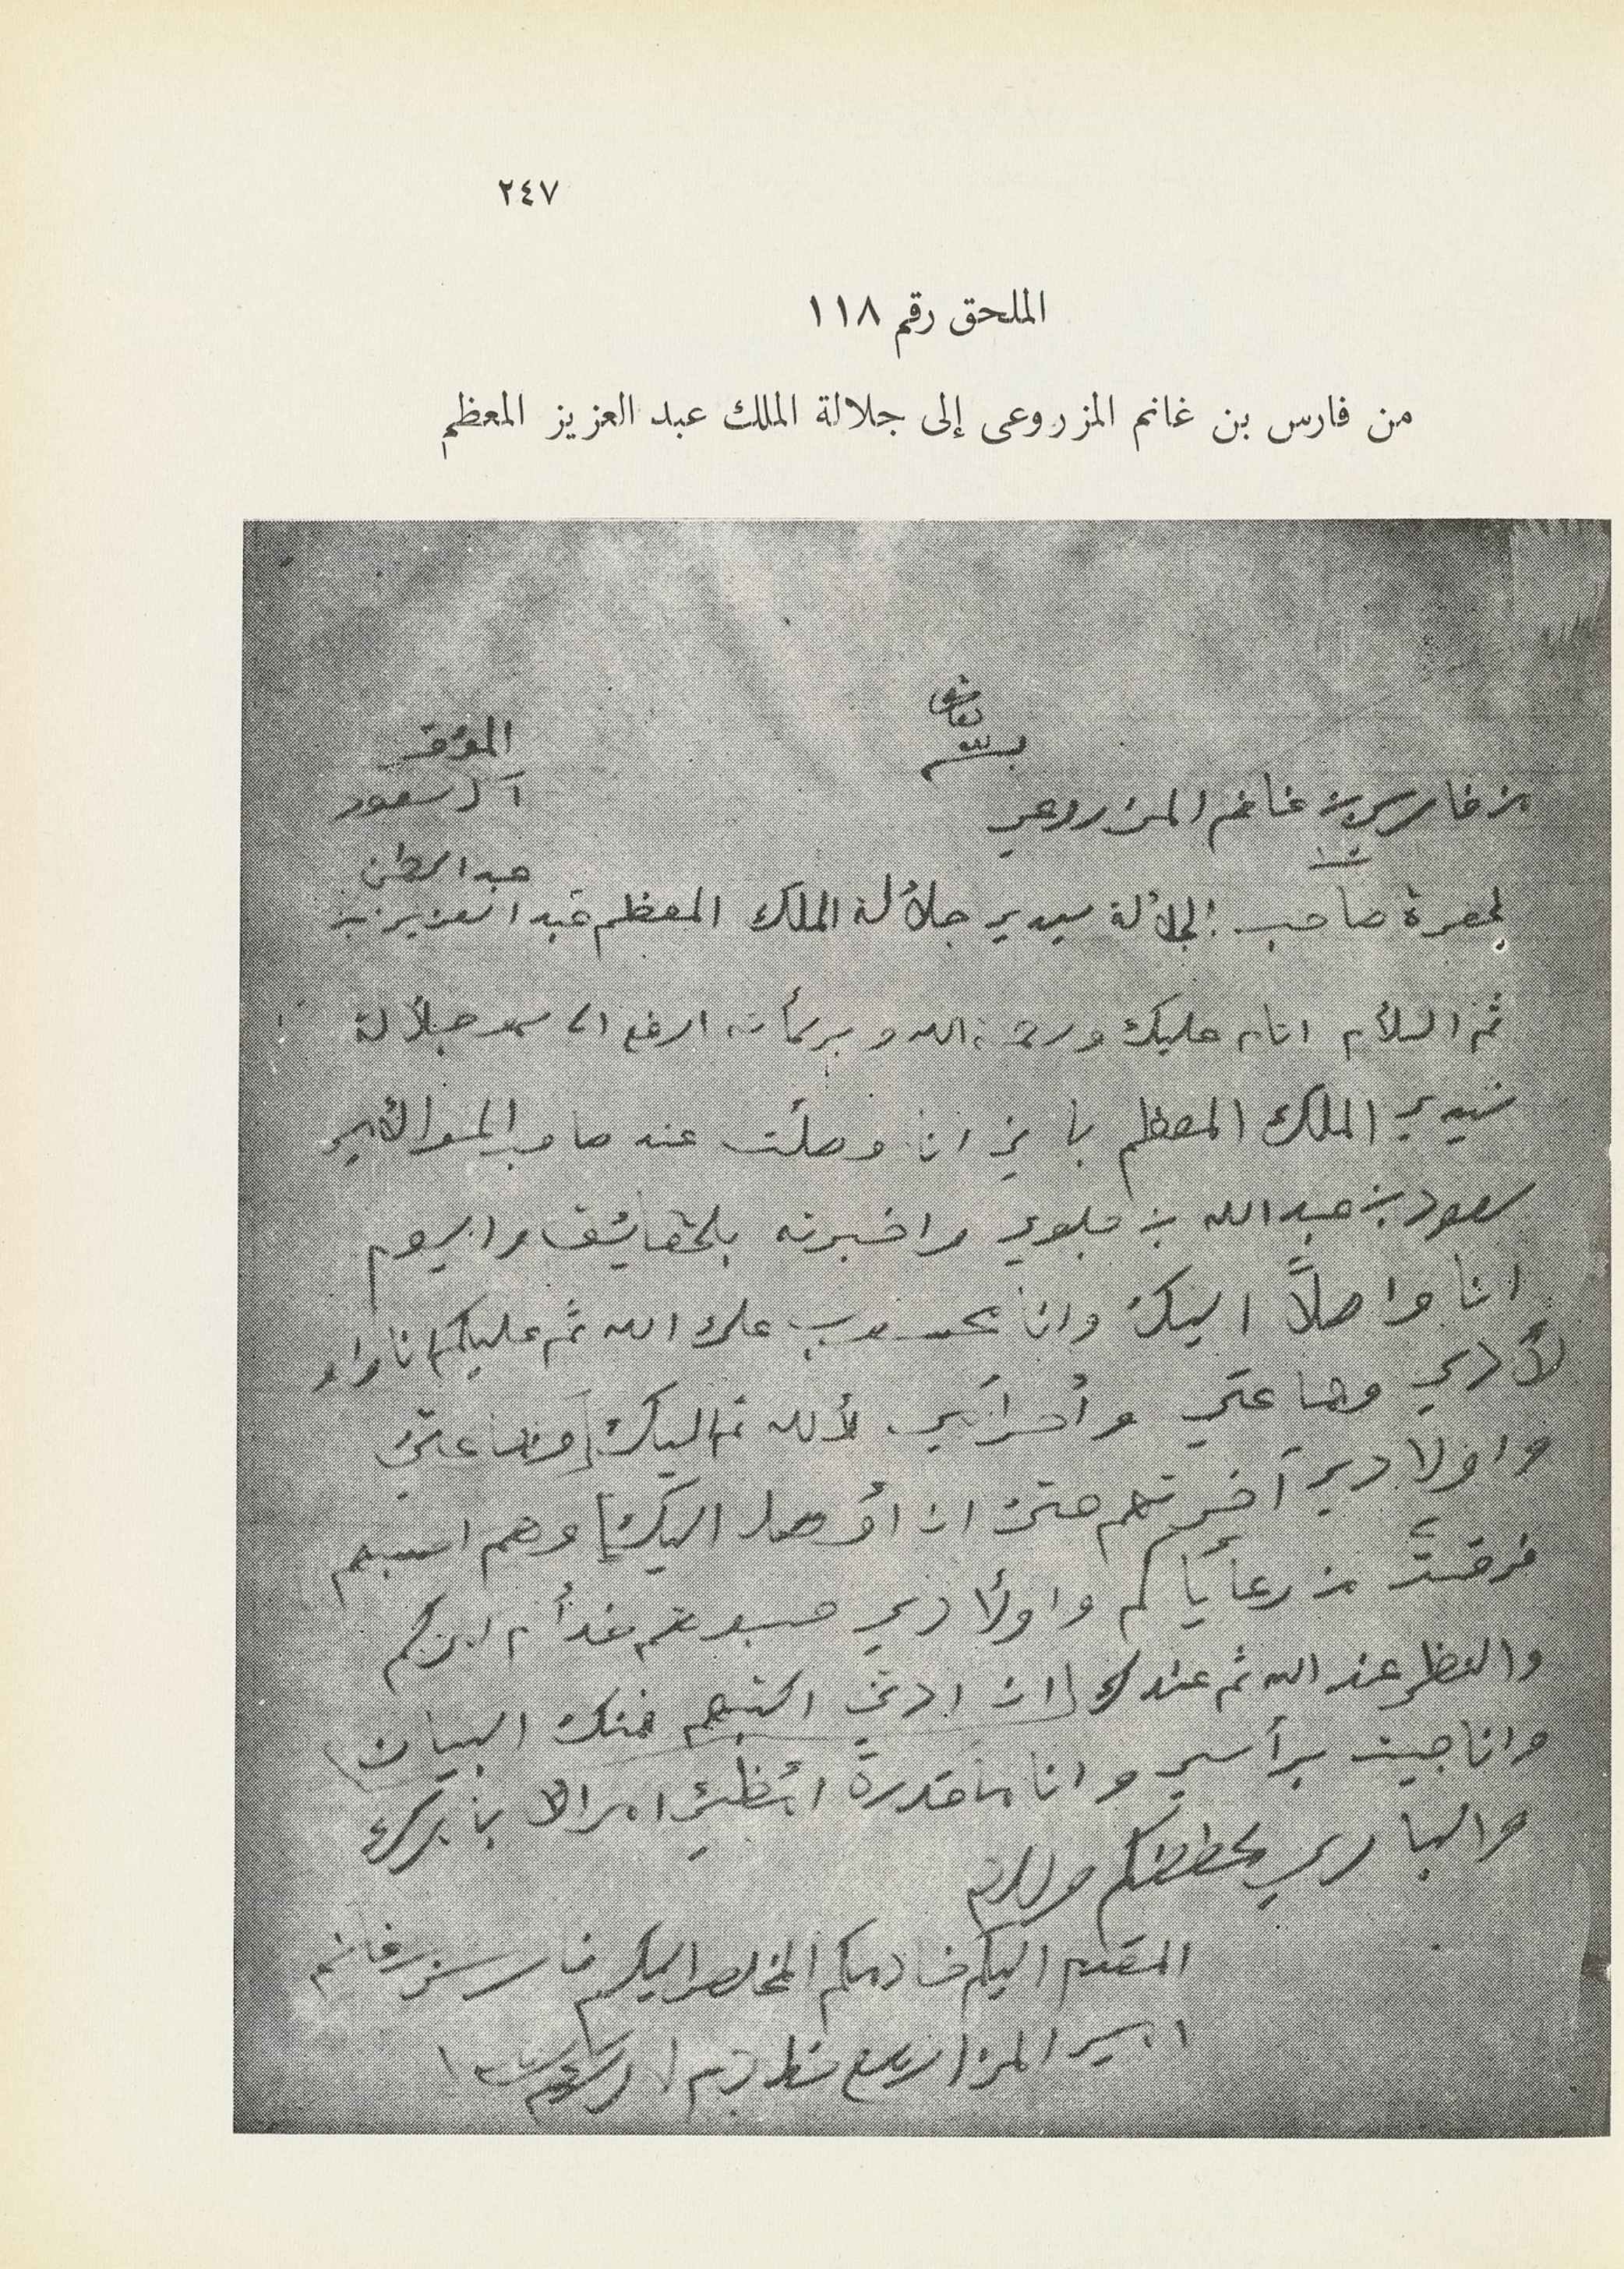 ٢٤٧
الملحق رقم ١١٨
من فارس بن غانم المزروعى إلى جلالة الملك عبد العزيز المعظم
بسم الله
تعالى
من فارس بن غانم المزروعي
الموقر
آل سعود
عبد الرحمن
لحضرة صاحب الجلالة سيدي جلالة الملك المعظم عبد العزيز بن
ثم السلام التام عليك ورحمة الله وبركاته ارفع الى سمو جلالة
سيدي الملك المعظم باني انا وصلت عند صاحب السمو الأمير
سعود بن عبد الله بن جلوي واخبرته بلحقايق واليوم
انا واصلاً اليك وانا محسوب على الله ثم عليكم انا
لأدي وجماعتي وأمرأتي لألله ثم اليك وجماعتي
واولادي أخرتهم حتى ان أوصل اليك وهم اسبهم
فرقت من رعاياكم واولادي خدام لكم
والنظر عند الله ثم عندك ان ادتني اكتبهم فمنك البيان
وانا جيت برأسي وانا ماقدرة امرالا بامرك
والباري يحفظكم والسلام
المقدم اليكم خادمكم المخلص اليكم فارس بن غانم
امير المزاريع